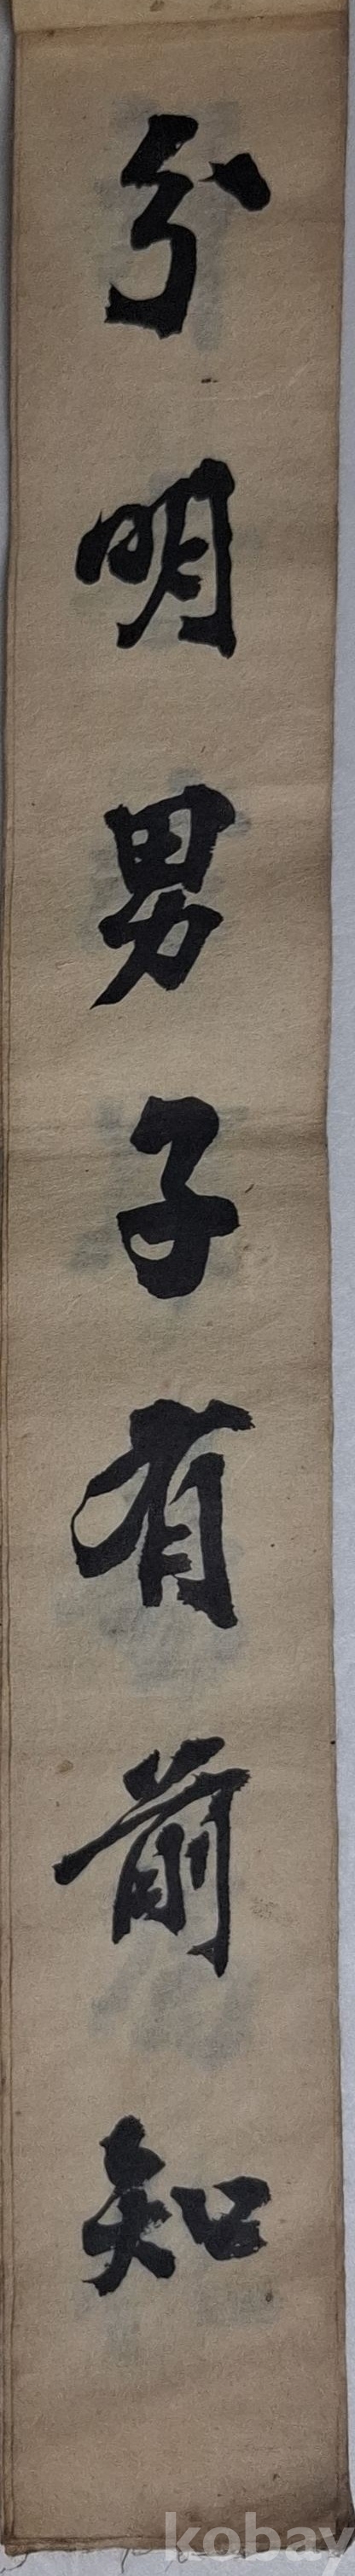 分明男子有前知
kobay